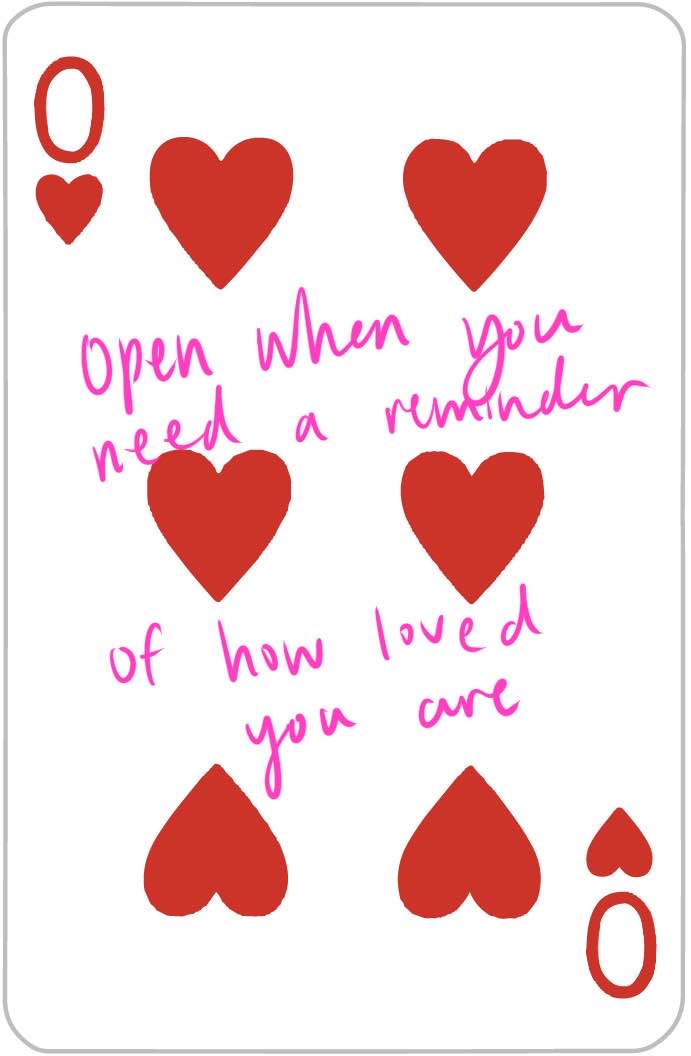 0
Open when you
need a reminder
of how loved
you are
0